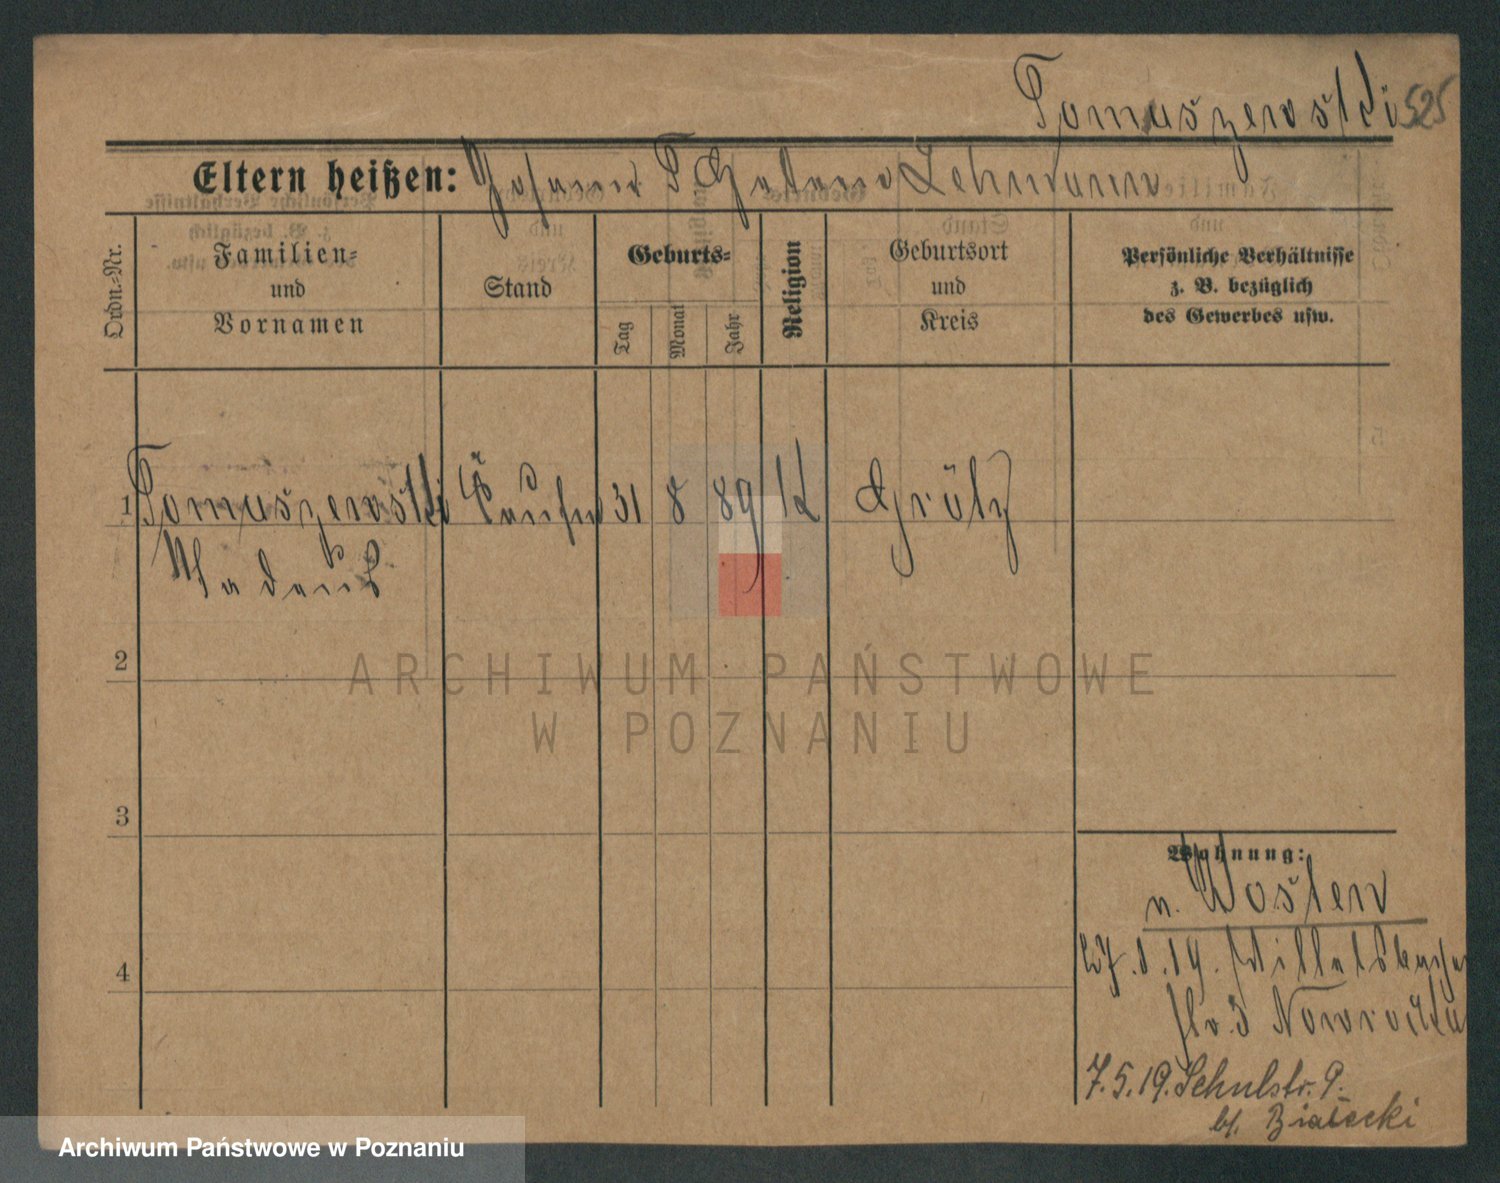 Tomaszewski 525
Eltern heißen: Johann T Helene Lehmann
Ordn.-Nr.
Familien-
und
Vornamen
Stand
Geburts-
Tag
Monat
Jahr
Religion
Geburtsort
und
Kreis
Persönliche Verhältnisse
z. B. bezüglich
des Gewerbes usw.
1 Tomaszewski 31 8 89 K Grätz
2
3
4
Wohnung:
n. Westen
19.
3
7.5.19. Schulstr. 9.
b/. Białecki
ARCHIWUM PAŃSTWOWE
W POZNANIU
Archiwum Państwowe w Poznaniu